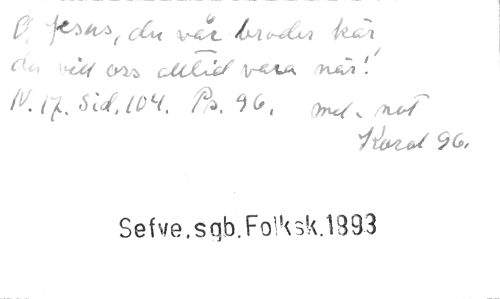 O, Jesus, du vår broder kär
du vill oss alltid vara när!
N. 17. Sid. 104. Ps. 96. med. not
Koral 96.
Sefve.sgb.Folksk.1893